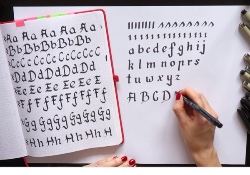 AaAaAaAa
BbBbBbBb
CcCcCcCcC
DdDdDdDd
Ee Ee Ee E
FfFfFfFf
GgGgGgGgG
Hh Hh Hh H
a b c d e f g h i j
k l m n o p r s
t u w x y z
A B C D